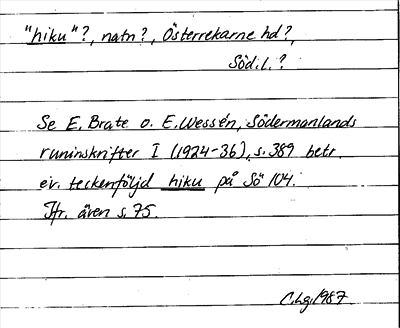 "hiku"?, natn?, Österrekarne hd?,
Söd.l.?
Se E. Brate o. E. Wessén, Södermanlands
runinskrifter I (1924-36), s. 389 betr.
ev. teckenföljd hiku på Sö 104.
Jfr. även s. 75.
C.Lg. 1987